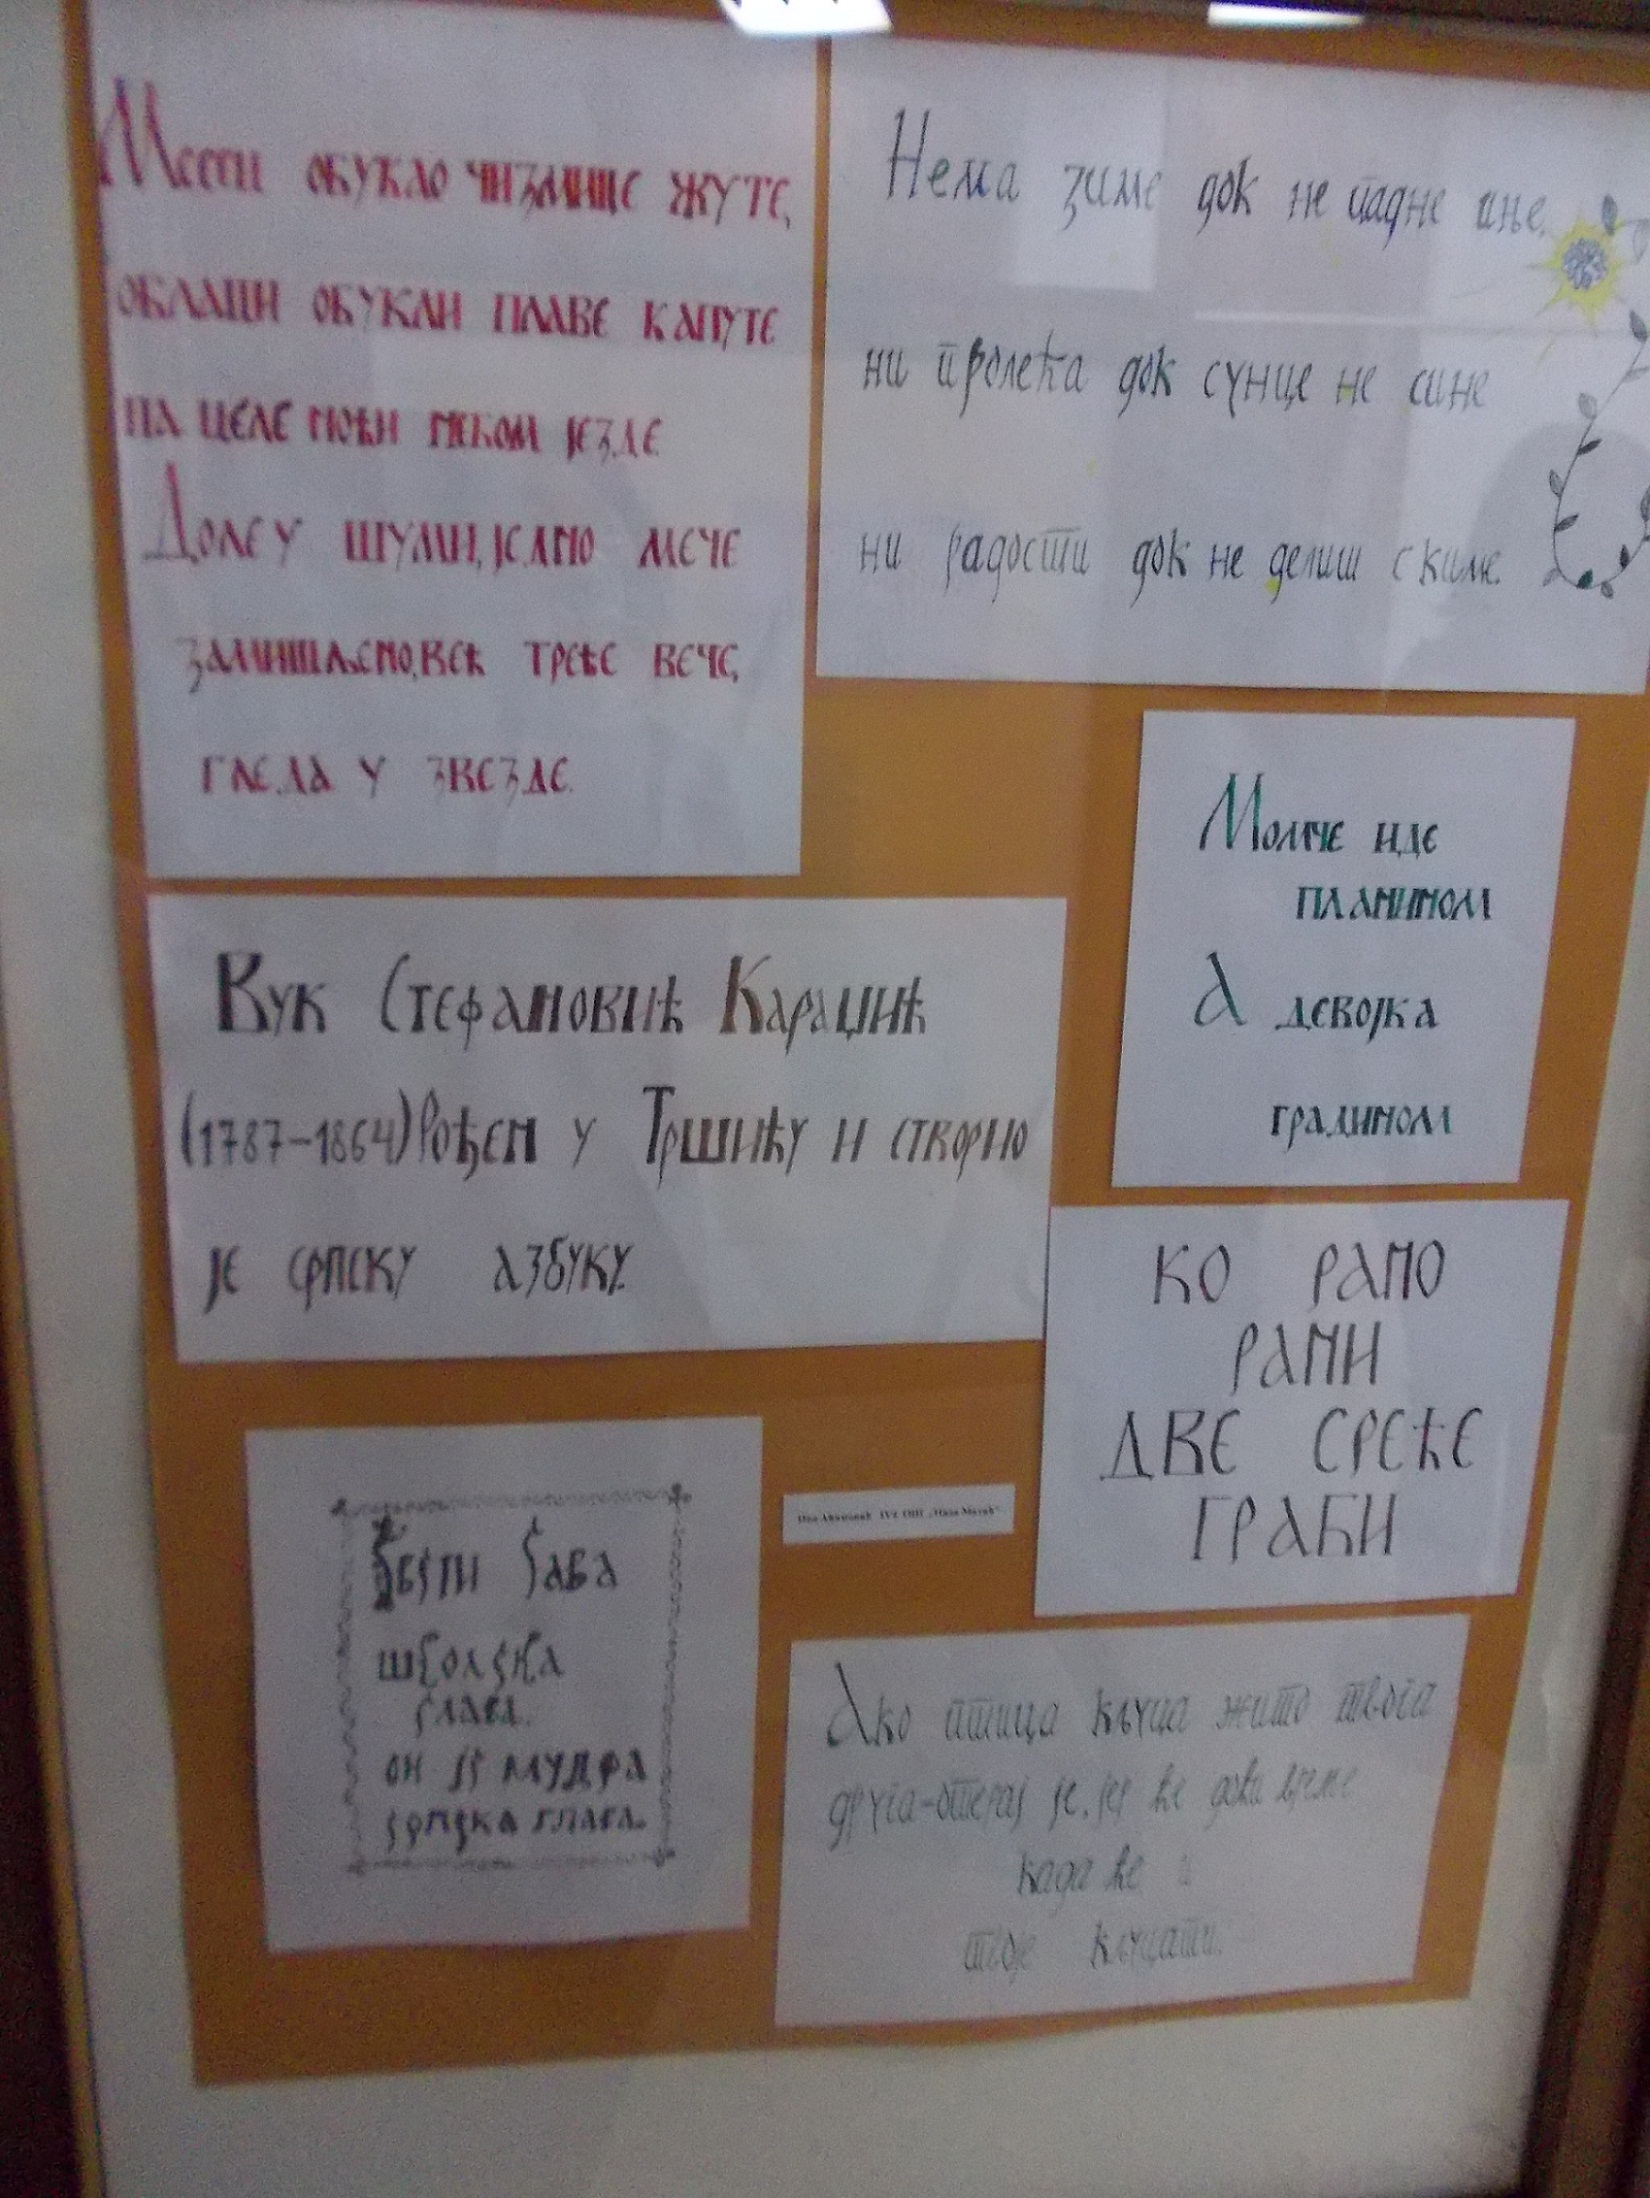 Месец обукло чизмице жуте,
облаци обукли плаве капуте
па целе ноћи неком језде
Доле у шуми, једно мече
замишљено, већ треће вече,
гледа у звезде.
Нема зиме док не падне иње,
ни пролећа док сунце не сине
ни радости док не делиш с киме.
Момче иде
планином
А девојка
градином
Вук Стефановић Караџић
(1787-1864) Рођен у Тршићу и створио
је српску азбуку.
КО РАНО
РАНИ
ДВЕ СРЕЋЕ
ГРАБИ
Свети Сава
школска
слава.
он је мудра
српска глава.
Ако птица кључа жито твога
друга-отерај је, јер ће доћи време
када ће и
твоје кљуцати.